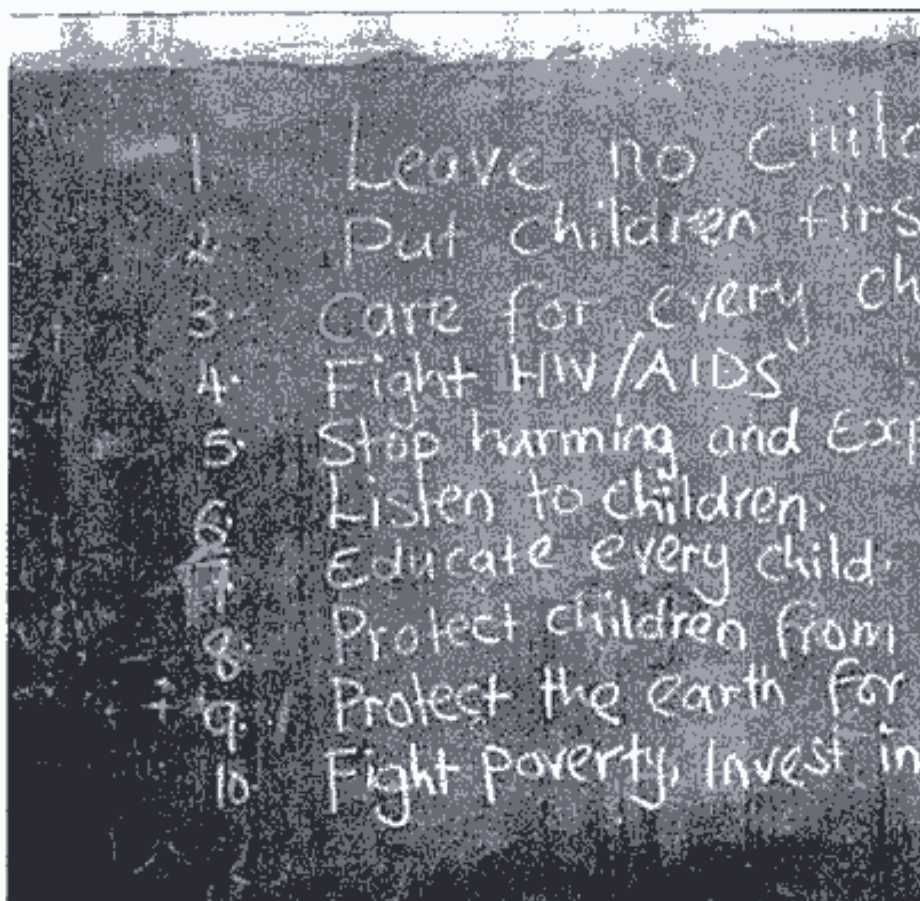 1. Leave no Chil
2. Put children firs
3. Care for every ch
4. Fight HIV/AIDS
5. Stop harming and Exp
6. Listen to children.
7 Educate every child.
8. Protect children from
9. Protect the earth for
10. Fight poverty, Invest in